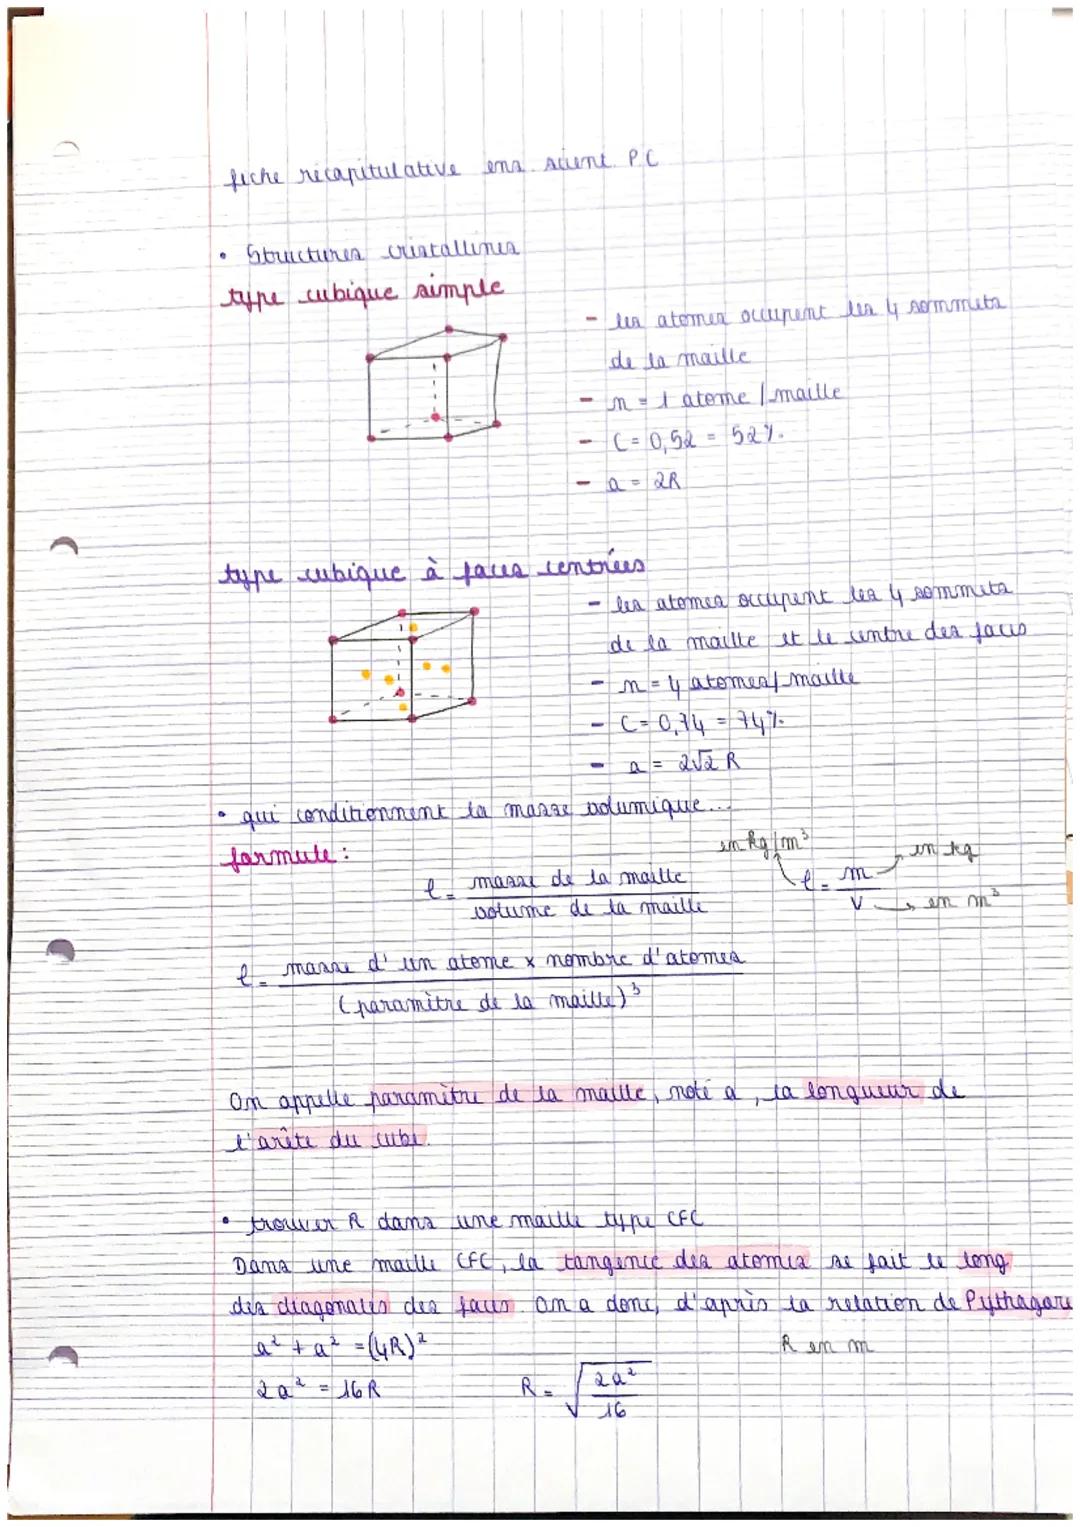 fiche récapitulative ens. scient. P.C
• Structures cristallines
type cubique simple
- les atomes occupent les 4 sommets
de la maille
- n = 1 atome / maille
- C = 0,52 = 52%.
- a = 2R
type cubique à faces centrées
- les atomes occupent les 4 sommets
de la maille et le centre des faces
- n = 4 atomes/ maille
- C = 0,74 = 74%.
- a = 2√2 R
• qui conditionnent la masse volumique...
formule :
ρ = masse de la maille / volume de la maille
en kg/m³ ρ = m / V en kg en m³
ρ = masse d'un atome x nombre d'atomes / (paramètre de la maille)³
On appelle paramètre de la maille, noté a, la longueur de
l'arête du cube.
• trouver R dans une maille type CFC
Dans une maille CFC, la tangence des atomes se fait le long
des diagonales des faces. On a donc, d'après la relation de Pythagore
a² + a² = (4R)² R en m
2a² = 16R R = √(2a² / 16)